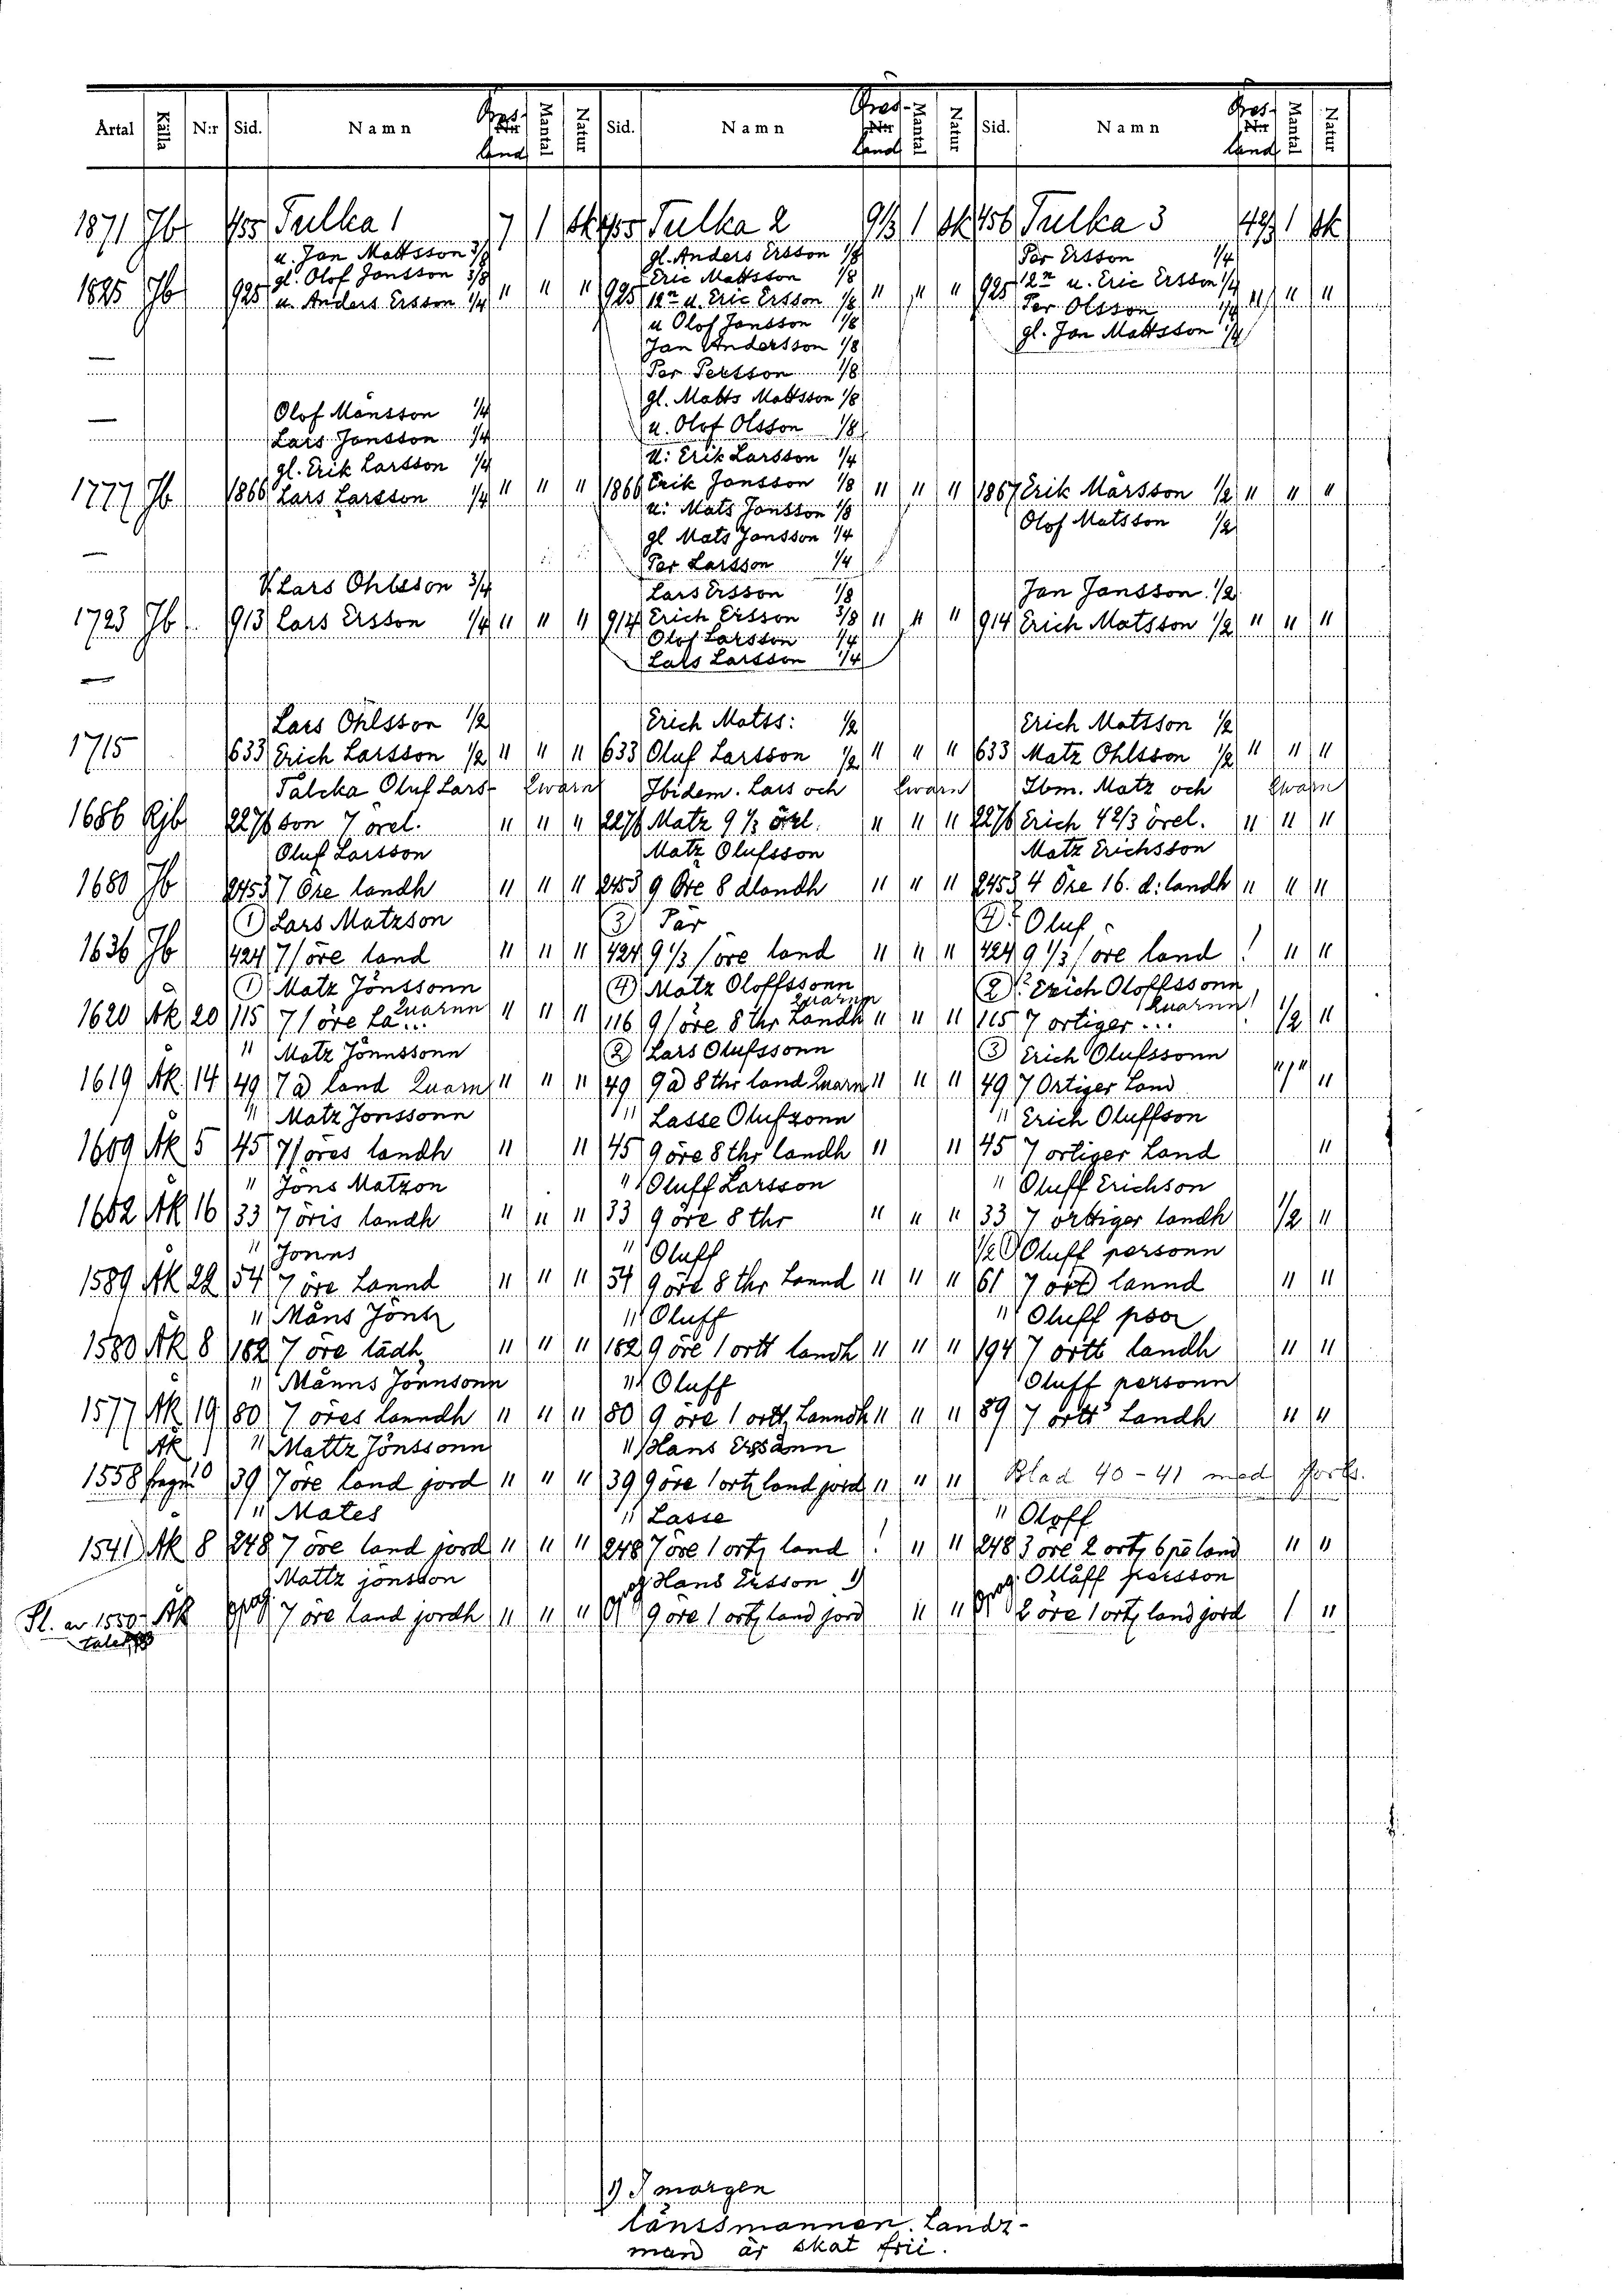 Årtal Källa N:r Sid. Namn Öres- land Mantal Natur Sid. Namn Öres- land Mantal Natur Sid. Namn Öres- land Mantal Natur
1871 Jb 455 Tulka 1 7 1 sk 455 Tulka 2 9 1/3 1 sk 456 Tulka 3 4 2/3 1 sk
u. Jan Mattsson 3/8 gl. Anders Ersson 1/8 Per Ersson 1/4
gl. Olof Jansson 3/8 Eric Mattsson 1/8 12n u. Eric Ersson 1/4
1825 Jb 925 u. Anders Ersson 1/4 " " " 925 12n u. Eric Ersson 1/8 " " " 925 Per Olsson 1/4 " " "
u Olof Jansson 1/8 gl. Jan Mattsson 1/4
Jan Andersson 1/8
— Per Persson 1/8
Olof Månsson 1/4 gl. Matts Mattsson 1/8
— Lars Jansson 1/4 u. Olof Olsson 1/8
gl. Erik Larsson 1/4 U: Erik Larsson 1/4
1777 Jb 1866 Lars Larsson 1/4 " " " 1866 Erik Jansson 1/8 " " " 1867 Erik Marsson 1/2 " " "
u: Mats Jansson 1/8 Olof Matsson 1/2
gl Mats Jansson 1/4
— Per Larsson 1/4
V. Lars Ohlsson 3/4 Lars Ersson 1/8 Jan Jansson 1/2
1723 Jb 913 Lars Ersson 1/4 " " " 914 Erich Ersson 3/8 " " " 914 Erich Matsson 1/2 " " "
Olof Larsson 1/4
Lars Larsson 1/4
—
Lars Ohlsson 1/2 Erich Matss: 1/2 Erich Matsson 1/2
1715 633 Erich Larsson 1/2 " " " 633 Oluf Larsson 1/2 " " " 633 Matz Ohlsson 1/2 " " "
Talcka Oluf Lars- Qwarn Ibidem. Lars och Qwarn Ibm. Matz och Qwarn
1686 Rjb 2276 son 7 örel. " " " 2276 Matz 9 1/3 örel. " " " 2276 Erich 4 2/3 örel. " " "
Oluf Larsson Matz Olufsson Matz Erichsson
1680 Jb 2453 7 Öre landh " " " 2453 9 Öre 8 dlandh " " " 2453 4 Öre 16. d: landh " " "
(1) Lars Matzson (3) Pär (4) Oluf
1636 Jb 424 7/öre land " " " 424 9 1/3 /öre land " " " 424 9 1/3 /öre land ! " "
(1) Matz Jönssonn (4) Matz Oloffssonn (2) Erich Oloffssonn
Quarnn Quarnn Quarnn
1620 Åk 20 115 7/öre La... " " " 116 9/öre 8 thr Landh " " " 115 7 ortiger... ! 1/2 "
" Matz Jönnssonn (2) Lars Olufssonn (3) Erich Olufssonn
1619 Åk 14 49 7 ö land Quarn " " " 49 9 ö 8 thr land Quarn " " " 49 7 Ortiger Land " " "
" Matz Jonssonn " Lasse Olufzonn " Erich Oluffson
1609 Åk 5 45 7/öres landh " " 45 9 öre 8 thr landh " " 45 7 ortiger Land "
" Jöns Matzon " Oluff Larsson " Oluff Erichson
1602 Åk 16 33 7 öris landh " " " 33 9 öre 8 thr " " " 33 7 örttiger landh 1/2 "
" Jönns " Oluff 1/2 Oluff personn
1589 Åk 22 54 7 öre Lannd " " " 54 9 öre 8 thr Lannd " " " 61 7 ört lannd " "
" Måns Jöns " Oluff " Oluff pson
1580 Åk 8 182 7 öre lädh " " " 182 9 öre 1 ortt landh " " " 194 7 örtt landh " "
" Månns Jönnsonn " Oluff Oluff personn
1577 Åk 19 80 7 öres lanndh " " " 80 9 öre 1 ortt Lanndh " " " 89 7 örtt Landh " "
Åk " Mattz Jönssonn " Hans Erssånn
1558 10 39 7 öre land jord " " " 39 9 öre 1 ortz land jord " " " Blad 40-41 med
" Mates " Lasse " Oloff
1541 Åk 8 248 7 öre land jord " " " 248 7 öre 1 ortz land ! " " 248 3 öre 2 ortz 6 pe land " "
Mattz jönsson Hans Ersson 1) Olläff persson
Sl. av 1530- Åk 7 öre land jordh " " " 9 öre 1 ortz land jord " " 2 öre 1 ortz land jord 1 "
talet
1) I morgen
länssmannen. Landz-
man är skat frii.